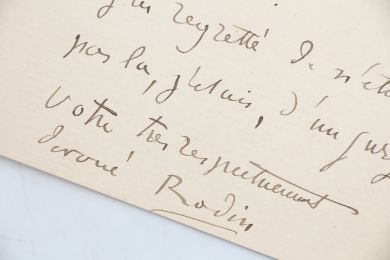 j'ai regretté de n'êt
pas là, j'étais, d'un
Votre très respectueusement
dévoué
Rodin